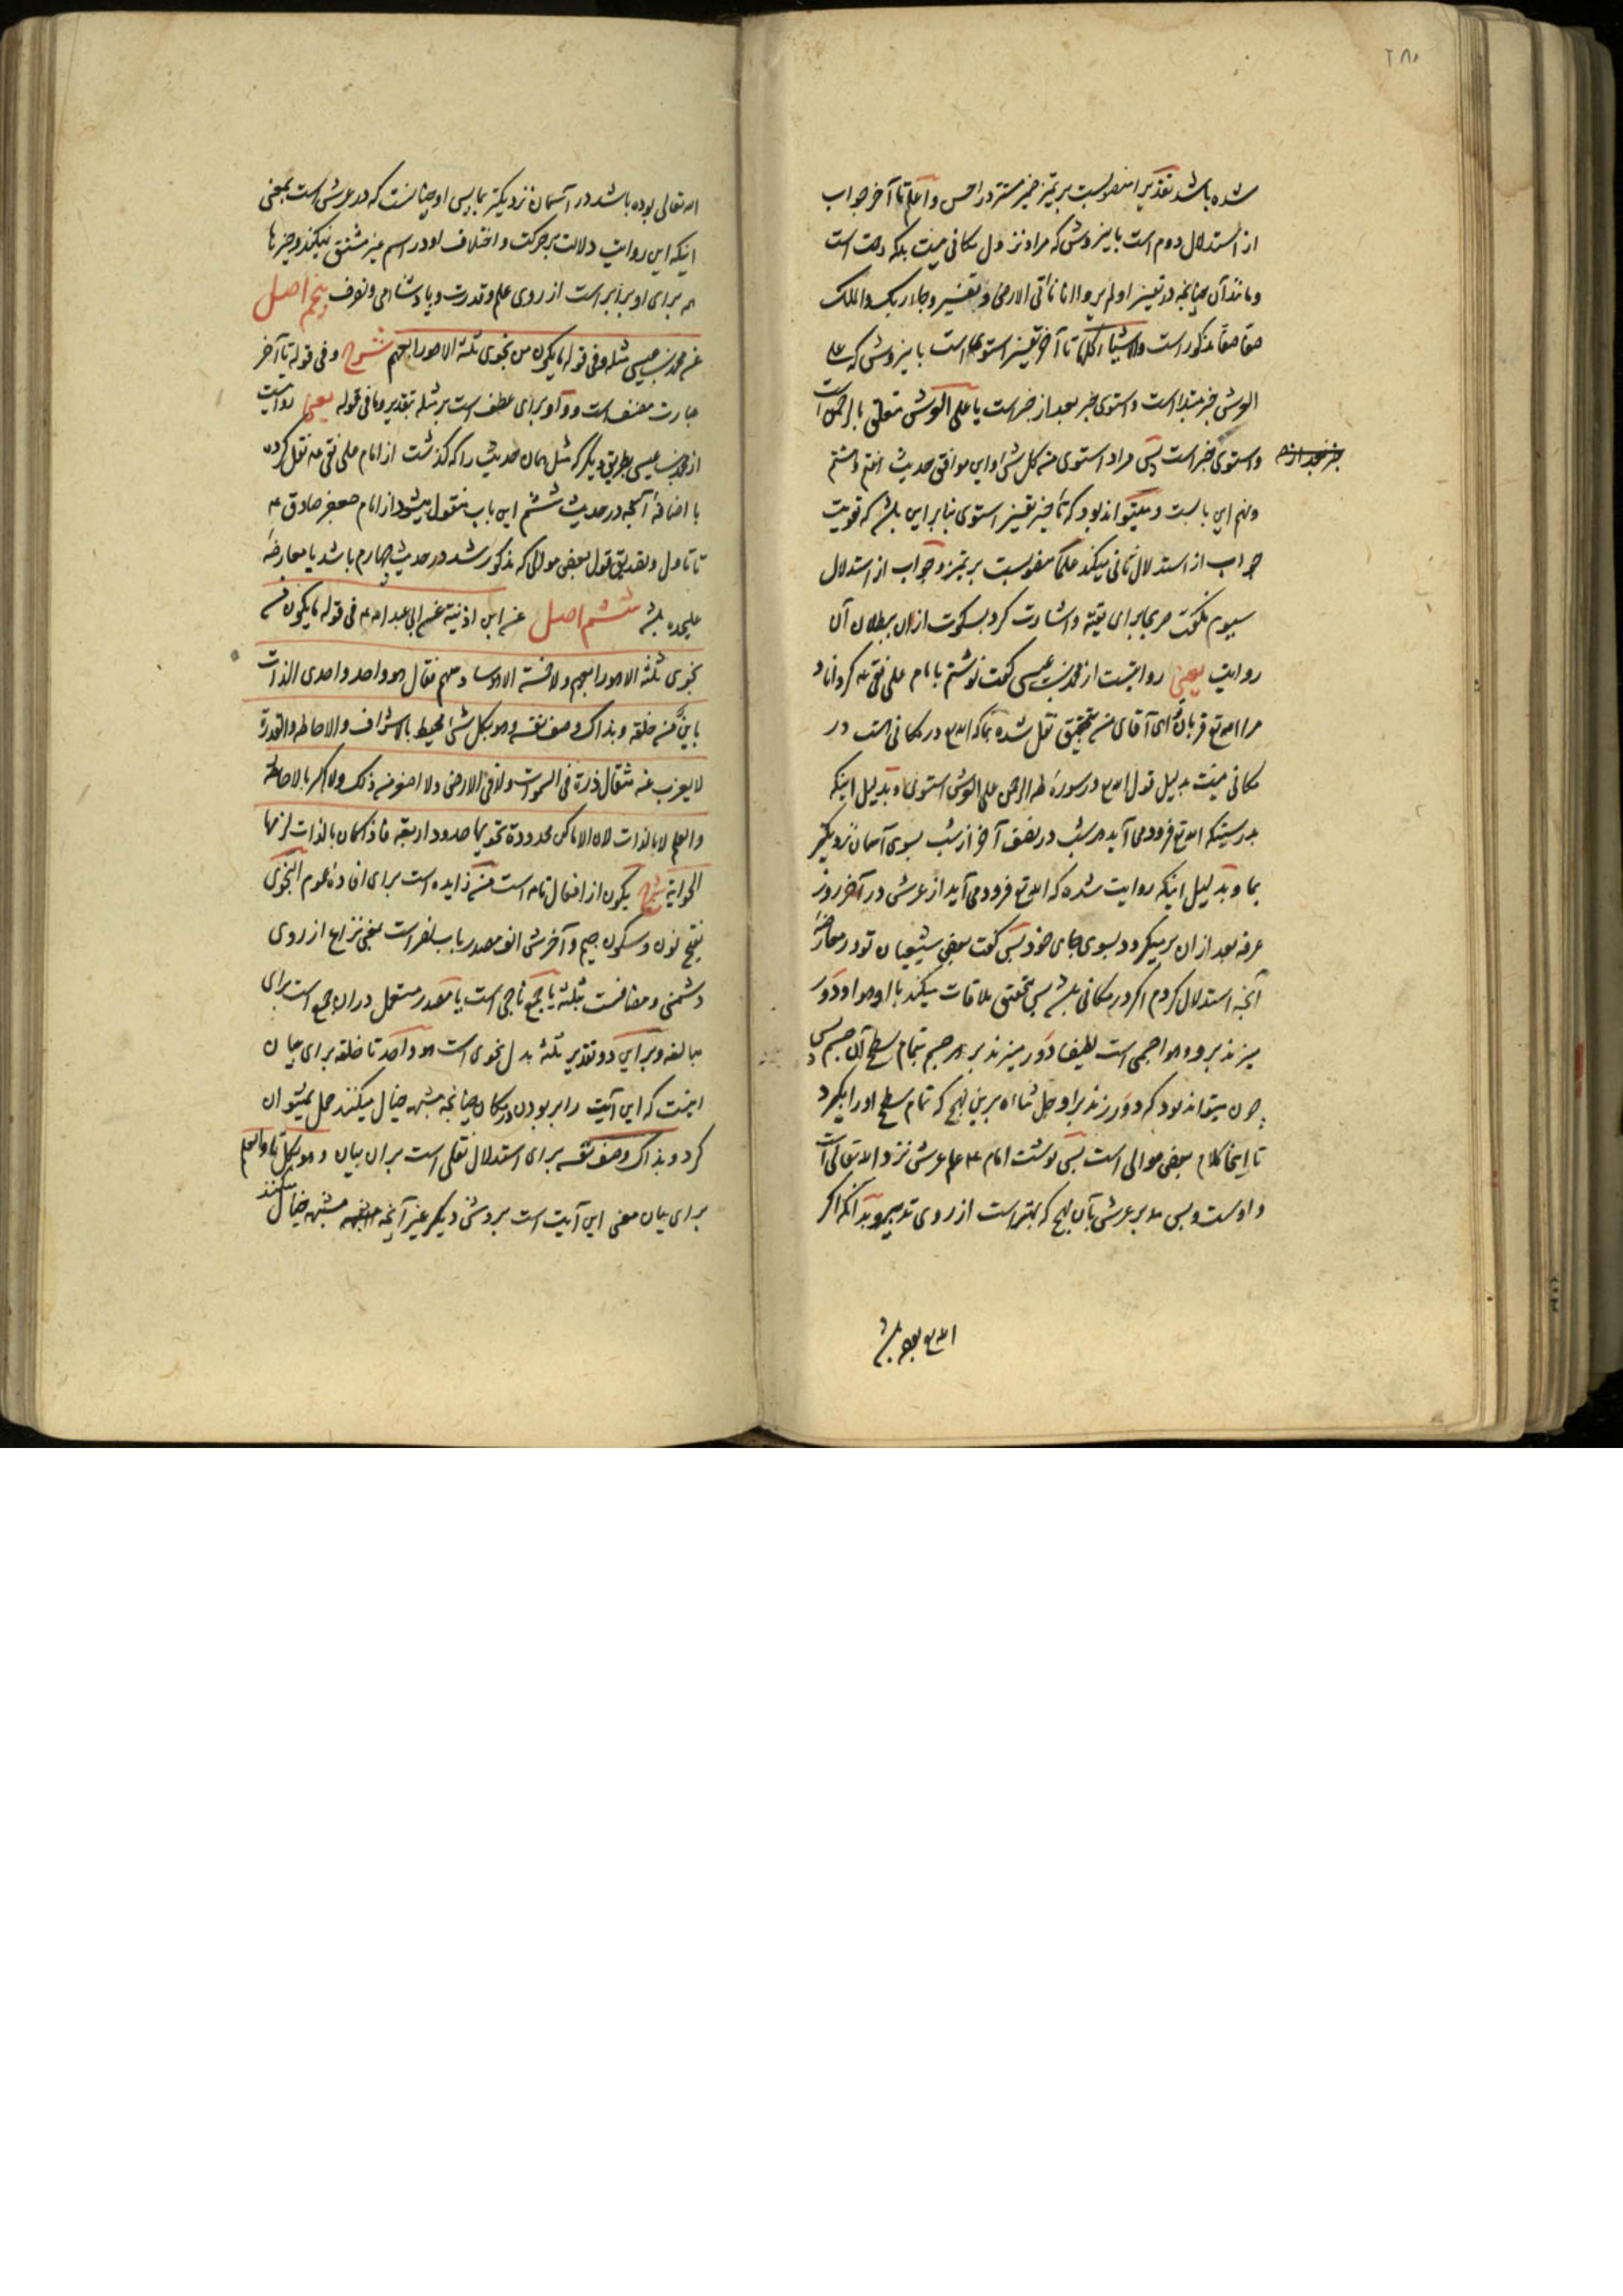 ۲۸۰
شده باشد تقدیرا منصوبست بر تمیز ضمیر مستتر در احسن و اعلم تا آخر جواب
از استدلال دوم است باینروش که مراد نزول مکانی نیست بلکه رحمت است
و مانند آن چنانچه در تفسیر اولم یروا انا ناتی الارض و تفسیر و جاء ربک والملک
صفا صفا مذکور است والاشیاء کلها تا آخر تفسیر استوی است باینروش که علی
العرش خبر مبتدا است و استوی خبر بعد از خبر است یا علی العرش متعلق بالرحمن است
و استوی خبر است پس مراد استوی من کل شیء و این موافق حدیث هفتم و هشتم
خبر بعد از
و نهم این بابست و میتواند بود که تا خیر تفسیر استوی بنابر این باشد که تقویت
جواب از استدلال ثانی میکند علما منصوبست بر تمیز و جواب از استدلال
سیوم نگفت صریحا برای تقیه و اشارت کرد بسکوت از ان ببطلان آن
روایت یعنی روایتست از محمد بن عیسی گفت نوشتم بامام علی نقی ع م که گرداناد
مرا الله تع قربان تو ای آقای من بتحقیق نقل شده بما که الله تع در مکانی هست در
مکانی نیست بدلیل قول الله تع در سوره طه الرحمن علی العرش استوی و بدلیل اینکه
بدرستیکه الله تع فرود می آید هر شب در نصف آخر از شب بسوی آسمان نزدیکتر
بما و بدلیل اینکه روایت شده که الله تع فرود می آید از عرش در آخر روز
عرفه بعد از ان برمیگردد بسوی جای خود پس گفت بعضی شیعیان تو در معارضه
آنچه استدلال کردم اگر در مکانی باشد پس بتحقیق ملاقات میکند با او هوا و دور
میزند بر و و هوا جسمی است لطیف و دور میزند بر هر جسم بتمام سطح آن جسم پس
چون میتواند بود که دور زند بر او جل ثناءه برین نهج که تمام سطح او را بگیرد
تا اینجا کلام بعض موالی است پس نوشت امام ع م علم عرش نزد الله تعالی است
و اوست و بس مدبر عرش بآن نهج که بهتر است از روی تدبیر و بدانکه اگر
الله تع بوده باشد
الله تعالی بوده باشد در آسمان نزدیکتر بما پس او چنانست که در عرش است بمعنی
اینکه این روایت دلالت بر حرکت و اختلاف او در اسم غیر مشتق نمیکند و چیزها
همه برای او برابر است از روی علم و قدرت و پادشاهی و تصرف پنجم اصل
عن محمد بن عیسی مثله و فی قوله ما یکون من نجوی ثلثة الا هو رابعهم شرح و فی قوله تا آخر
عبارت مصنف است و واو برای عطف است بر مثله بتقدیر و ما فی قوله یعنی روایت
از محمد بن عیسی بطریق دیگر که مثل همان حدیث را که گذشت از امام علی نقی ع م نقل کرده
با اضافه آنچه در حدیث ششم این باب منقول میشود از امام جعفر صادق ع م
تا تاویل و تصدیق قول بعض موالی که مذکور شد در حدیث چهارم باشد یا معارضه
علیحده باشد ششم اصل عن ابن اذینه عن ابی عبد الله ع م فی قوله ما یکون من
نجوی ثلثة الا هو رابعهم ولا خمسة الا هو سادسهم فقال هو واحد واحدی الذات
باین من خلقه وبذاک وصف نفسه وهو بکل شیء محیط بالاشراف والاحاطة والقدرة
لا یعزب عنه مثقال ذرة فی السموات ولا فی الارض ولا اصغر من ذلک ولا اکبر بالاحاطة
والعلم لا بالذات لان الاماکن محدودة تحویها حدود اربعة فاذا کان بالذات لزمها
الحوایة شرح یکون از افعال تامه است من زایده است برای افاده عموم النجوی
بفتح نون و سکون جیم و آخرش الف مصدر باب نصر است بمعنی نزاع از روی
دشمنی و مضافست بثلثه یا جمع ناجی است یا مصدر مستعمل در ان جمع است برای
مبالغه و بر این دو تقدیر ثلثه بدل نجوی است هو واحد تا خلقه برای بیان
اینست که این آیت را بر بودن در مکان چنانچه مشبهه خیال میکنند حمل نمیتوان
کرد و بذاک وصف نفسه برای استدلال نقلی است بر ان بیان و هو بکل تا والعلم
برای بیان معنی این آیت است بروش دیگر غیر آنچه مشبهه خیال میکنند